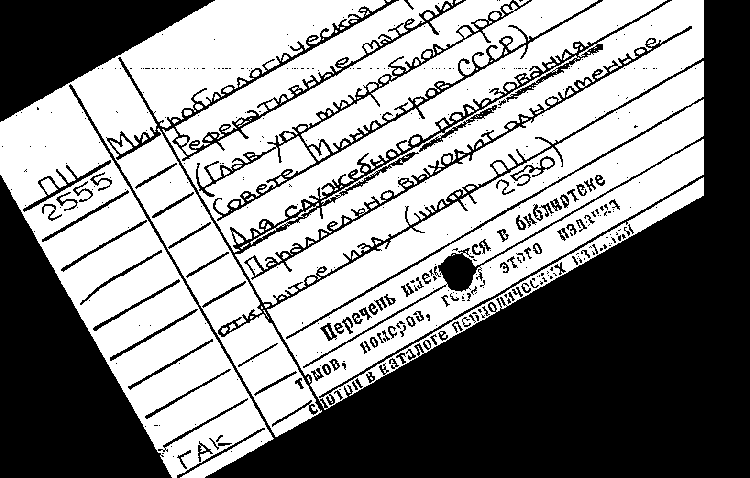 Микробиологическая
Реферативные
(Глав. упр. микробиол. пром.
Совете Министров СССР).
Для служебного пользования.
Параллельно выходит одноименное
открытое изд. (шифр. П11
2530)
П11
2555
Перечень в библиотеке
томов, номеров, этого издания
смотри в каталоге периодических изданий
ГАК